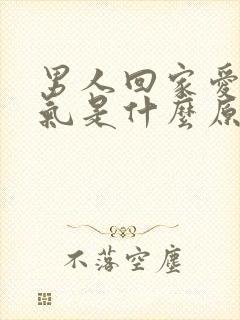 男人回家愛
氣是什麼原
不落空塵